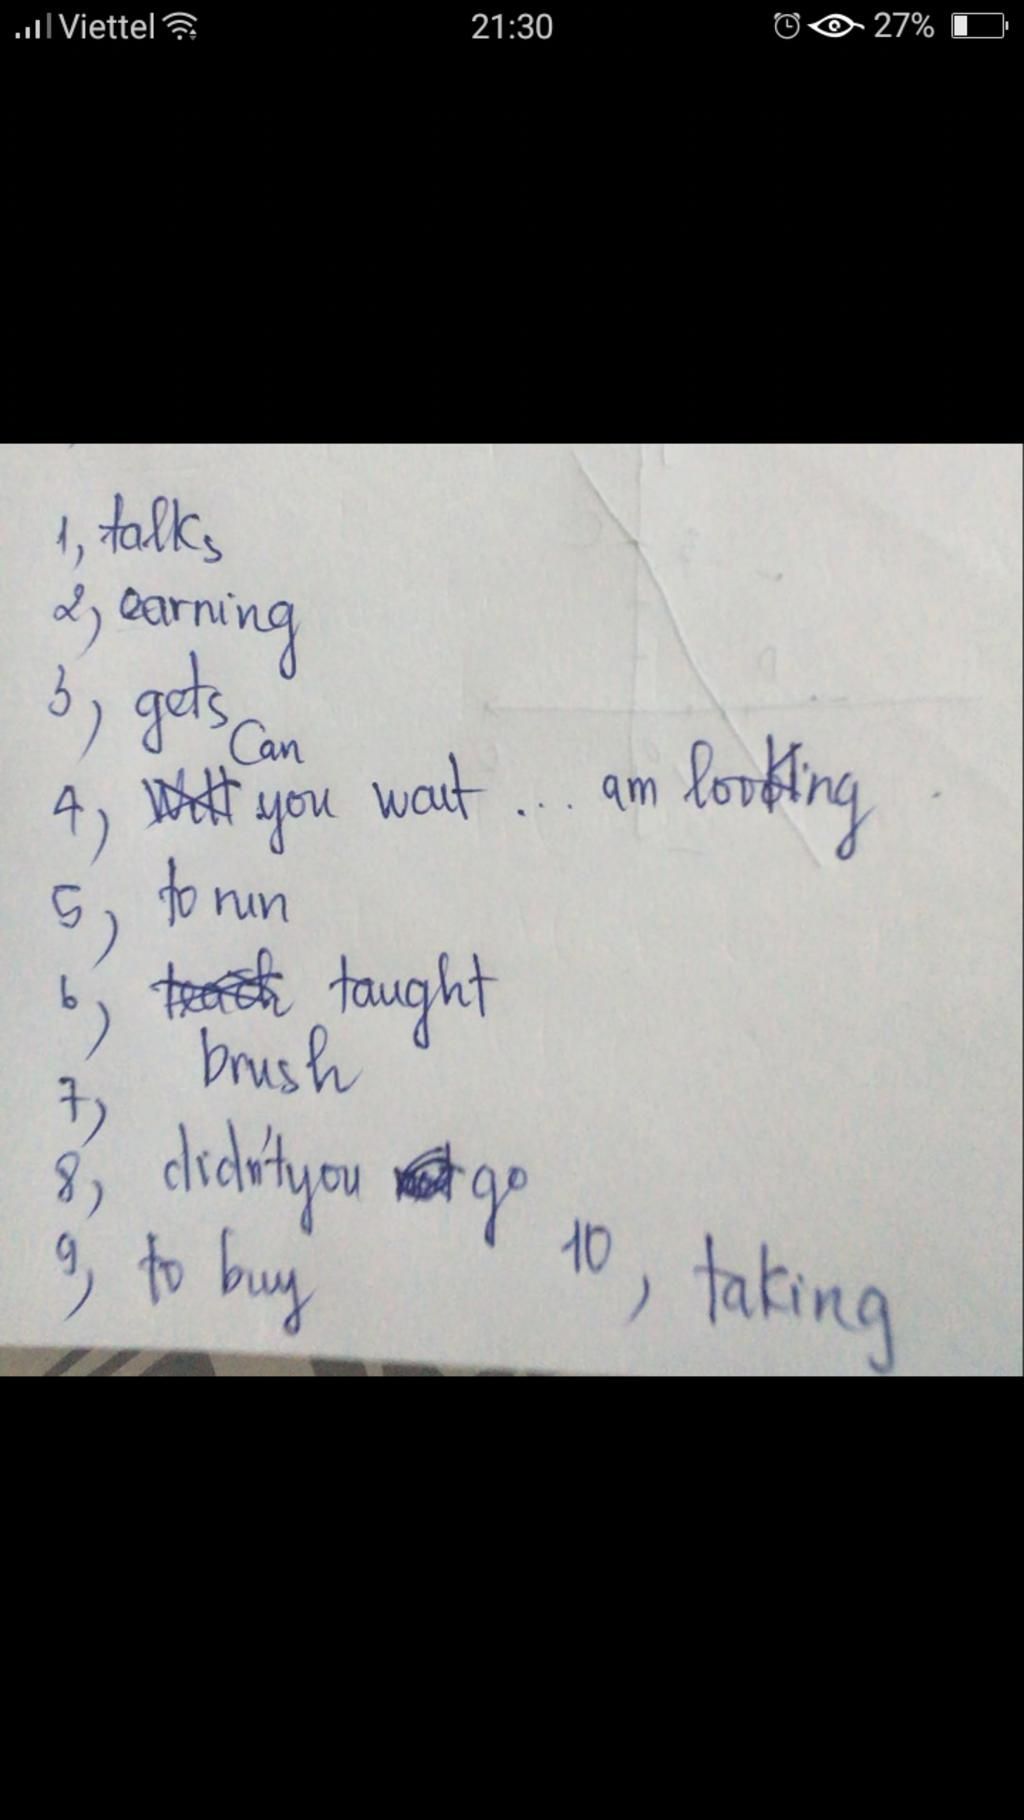 Viettel 21:30 27%
1, talks
2, earning
3, gets
Can
4, Will you wait ... am looking
5, to run
6, teach taught
7, brush
8, didn't you not go
9, to buy 10, taking